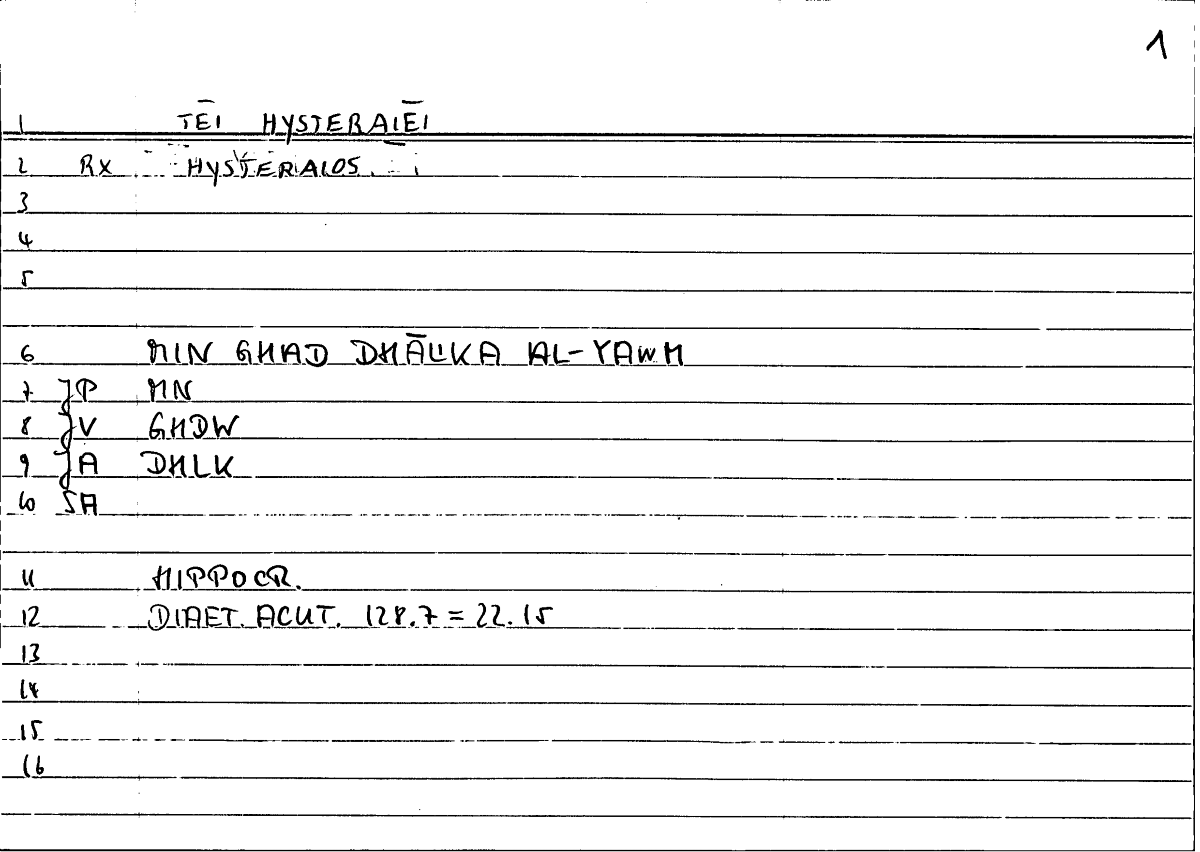 1
1 TĒI HYSTERAIĒI
2 RX HYSTERAIOS
3
4
5
6 MIN GHAD DHĀLIKA AL-YAWM
7 JP MN
8 JV GHDW
9 JA DHLK
10 SA
11 HIPPOCR.
12 DIAET. ACUT. 128.7 = 22.15
13
14
15
16